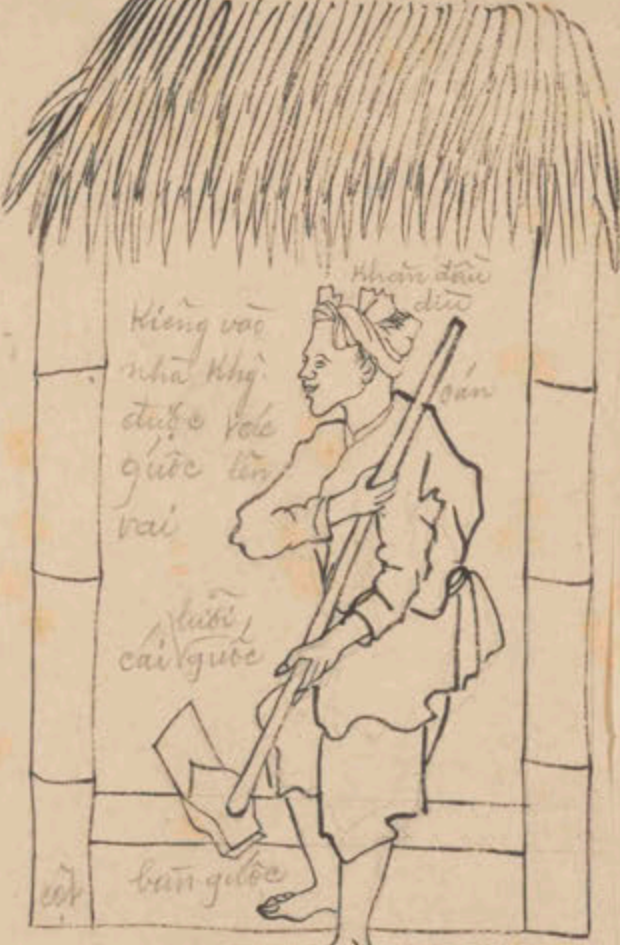 Khăn đầu
dìu
Kiêng vào
nhà Khg.
được vác
quốc lên
vai
cán
lưỡi
cái quốc
bàn quốc
cột